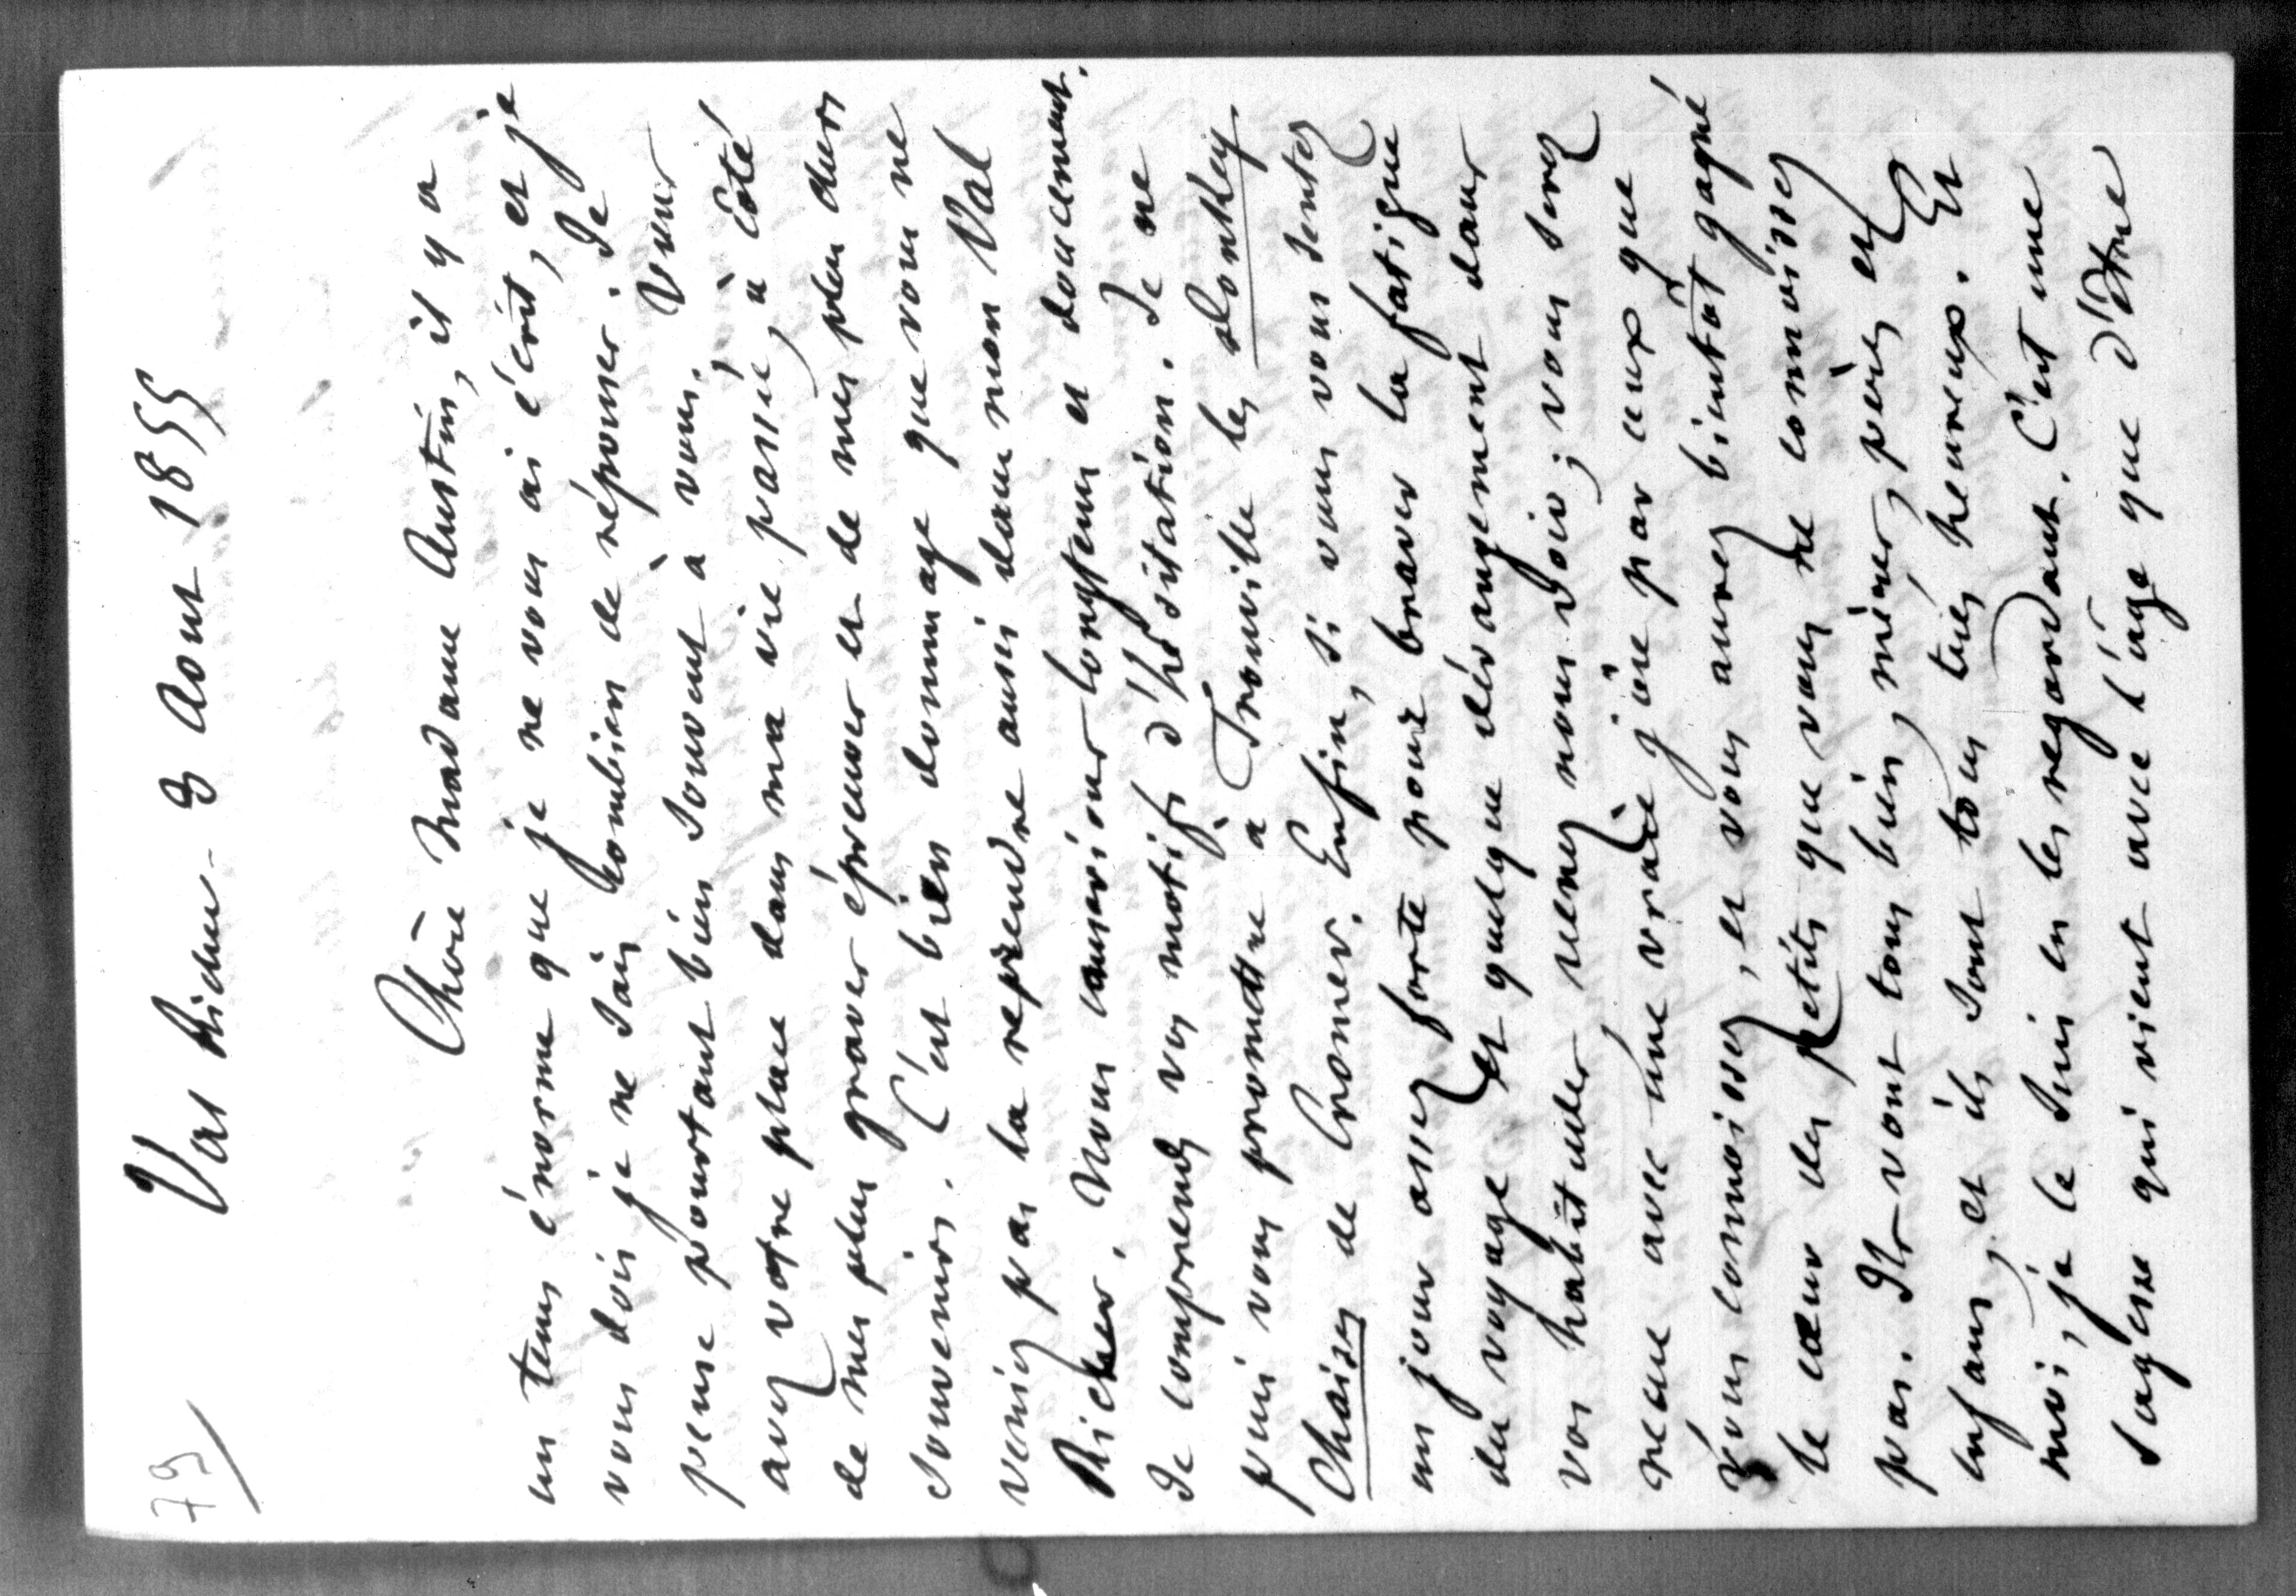 79
Val Richer - 3 Aout 1855
Chère Madame Austin, il y a
un tems énorme que je ne vous ai écrit, et je
vous dois je ne sais combien de réponses. Je
pense pourtant bien souvent à vous. Vous
avez votre place dans ma vie passée, à côté
de mes plus graves épreuves et de mes plus chers
souvenirs. C'est bien dommage que vous ne
veniez pas la reprendre aussi dans mon Val
Richer. Nous causerions longtems et doucement.
Je comprends vos motifs d'hésitation. Je ne
puis vous promettre à Trouville les donkey
Chaises de Cromer. Enfin, si vous vous sentez
un jour assez forte pour braver la fatigue
du voyage et quelque dérangement dans
vos habitudes, venez nous voir ; vous serez
reçue avec une vraie joie par ceux que
vous connoissez, et vous aurez bientôt gagné
le cœur des petits que vous ne connoissez
pas. Ils vont tous bien, mères, pères et
enfans, et ils sont tous très heureux. Et
moi, je le suis en les regardant. C'est une
sagesse qui vient avec l'âge que d'être